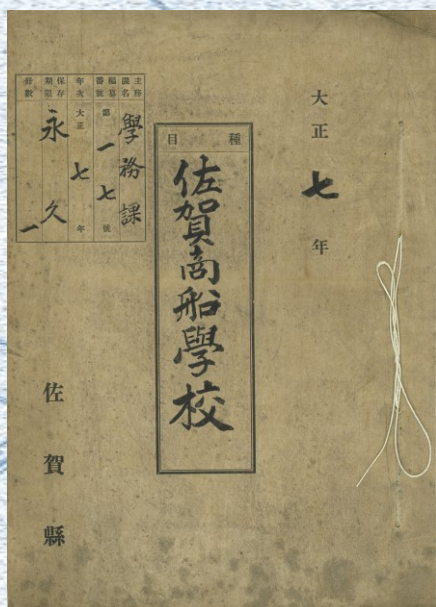 大正七年
種目
佐賀商船學校
主務課名 學務課
編纂番號 第一七號
年次 大正七年
保存期限 永久
冊數 一
佐賀縣